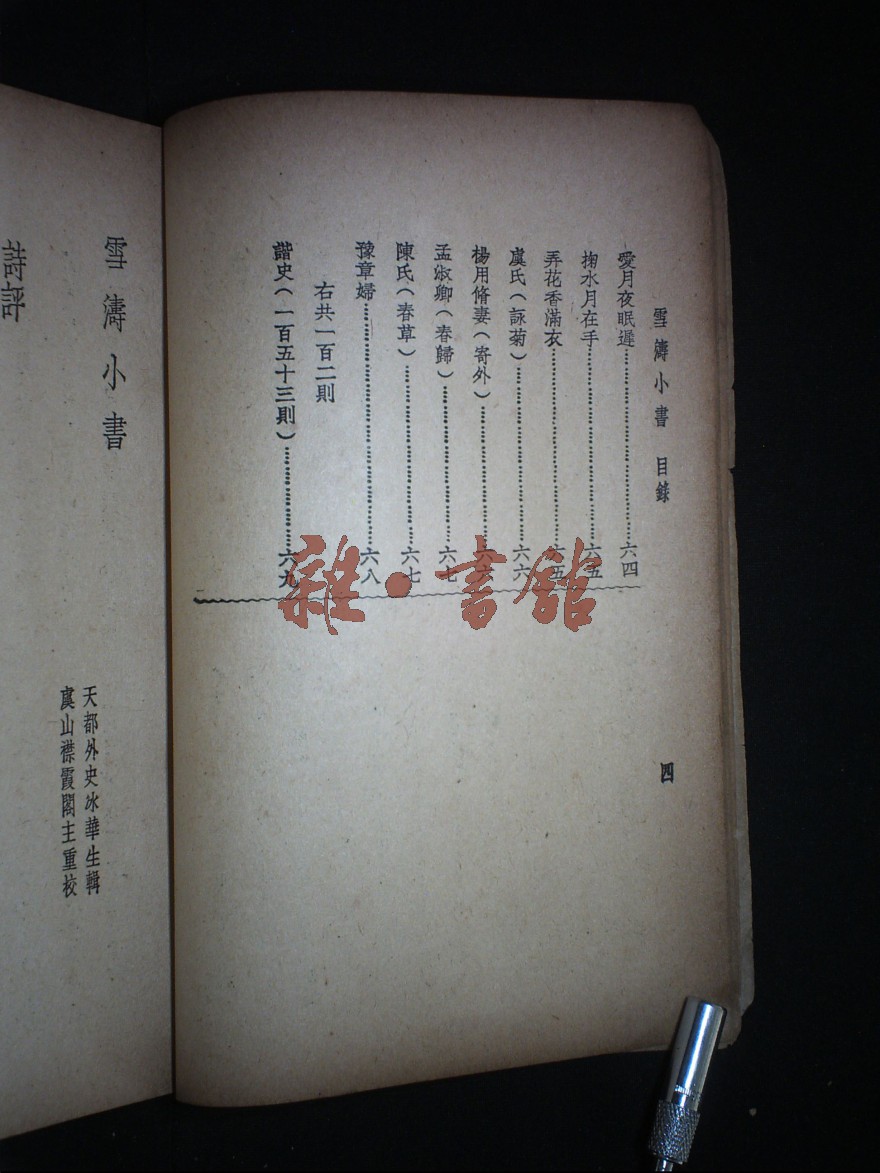 雪濤小書 目錄
愛月夜眠遲……六四
掬水月在手……六五
弄花香滿衣……六五
虞氏（詠菊）……六六
楊用脩妻（寄外）……六六
孟淑卿（春歸）……六七
陳氏（春草）……六七
豫章婦……六八
右共一百二則
諧史（一百五十三則）……六九
四
雜·書館
雪濤小書
天都外史冰華生輯
虞山襟霞閣主重校
詩評